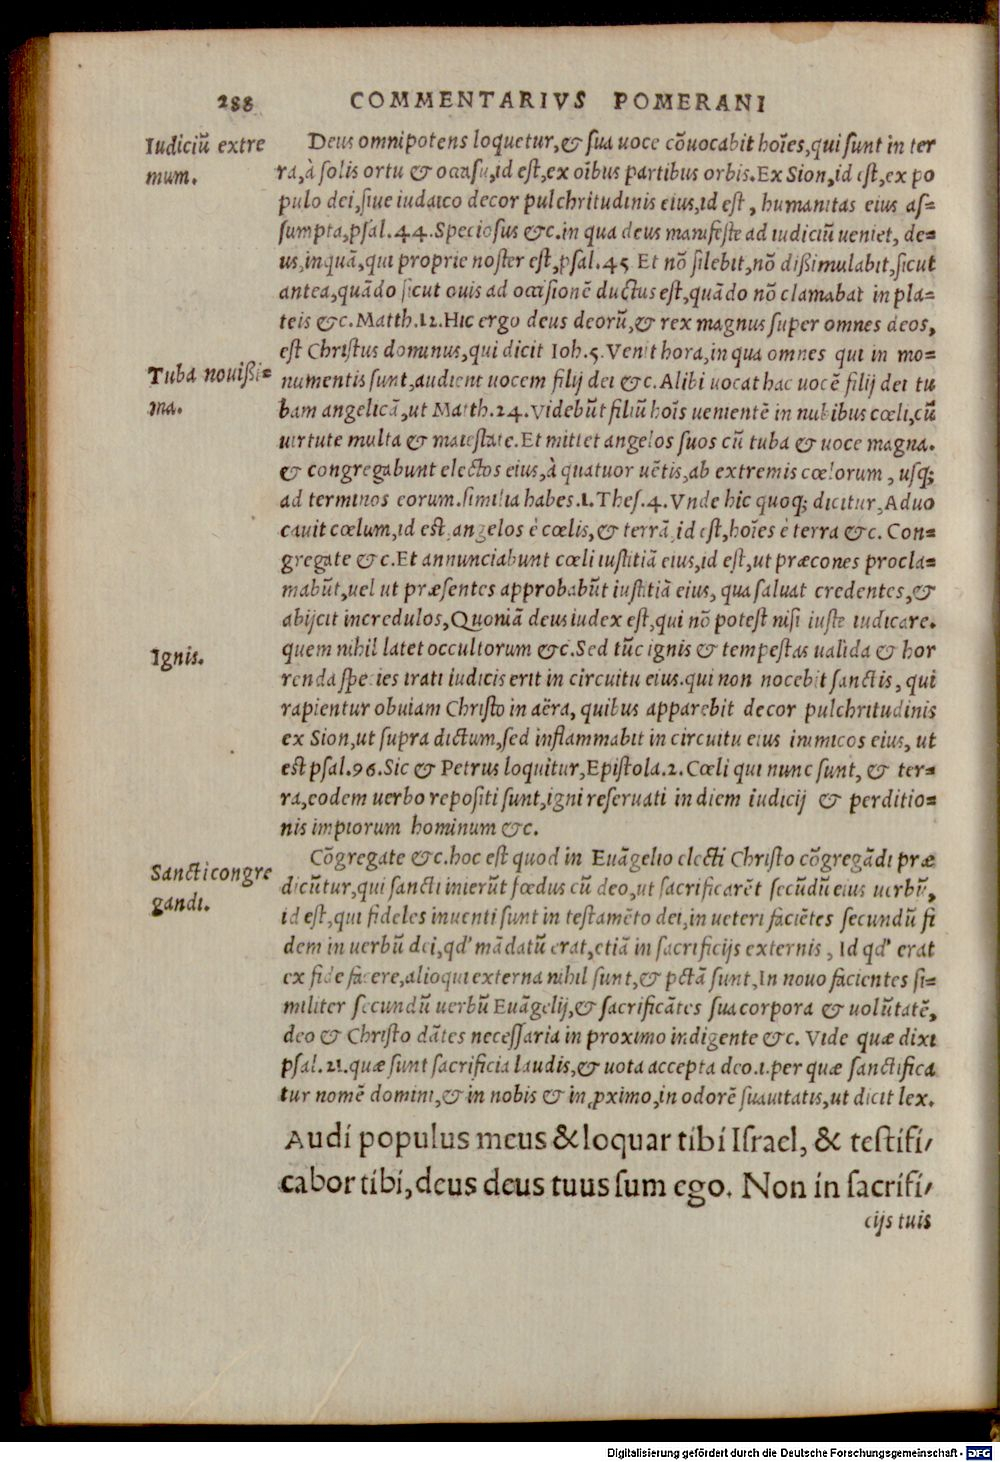 288 COMMENTARIVS POMERANI
Iudiciũ extre
mum.
Deus omnipotens loquetur,& sua uoce cõuocabit hoĩes,qui sunt in ter
ra,à solis ortu & occasu,id est,ex oibus partibus orbis.Ex Sion,id est,ex po
pulo dei,siue iudaico decor pulchritudinis eius,id est, humanitas eius as=
sumpta,psal.44.Speciosus &c.in qua deus manifeste ad iudiciũ ueniet, de=
us,inquã,qui proprie noster est,psal.45 Et nõ silebit,nõ dißimulabit,sicut
antea,quãdo sicut ouis ad occisionẽ ductus est,quãdo nõ clamabat in pla=
teis &c.Matth.12.Hic ergo deus deorũ,& rex magnus super omnes deos,
est Christus dominus,qui dicit Ioh.5.Venit hora,in qua omnes qui in mo=
Tuba nouißi=
ma.
numentis sunt,audient uocem filij dei &c.Alibi uocat hac uocẽ filij dei tu
bam angelicã,ut Matth.24.Videbũt filiũ hoĩs uenientẽ in nubibus cœli,cũ
uirtute multa & maiestate.Et mittet angelos suos cũ tuba & uoce magna.
& congregabunt electos eius,à quatuor uẽtis,ab extremis cœlorum, usq;
ad terminos eorum.similia habes.1.Thes.4.Vnde hic quoq; dicitur,Aduo
cauit cœlum,id est,angelos è cœlis,& terrã,id est,hoĩes è terra &c. Con=
gregate &c.Et annunciabunt cœli iustitiã eius,id est,ut præcones procla=
mabũt,uel ut præsentes approbabũt iustitiã eius, qua saluat credentes,&
abijcit incredulos,Quoniã deus iudex est,qui nõ potest nisi iuste iudicare.
Ignis.
quem nihil latet occultorum &c.Sed tũc ignis & tempestas ualida & hor
renda species irati iudicis erit in circuitu eius.qui non nocebit sanctis, qui
rapientur obuiam Christo in aëra, quibus apparebit decor pulchritudinis
ex Sion,ut supra dictum,sed inflammabit in circuitu eius inimicos eius, ut
est psal.96.Sic & Petrus loquitur,Epistola.2.Cœli qui nunc sunt, & ter=
ra,eodem uerbo repositi sunt,igni reseruati in diem iudicij & perditio=
nis impiorum hominum &c.
Sancti congre
gandi.
Cõgregate &c.hoc est quod in Euãgelio electi Christo cõgregãdi præ
dicũtur,qui sancti inierũt fœdus cũ deo,ut sacrificarẽt secũdũ eius uerbũ,
id est,qui fideles inuenti sunt in testamẽto dei,in ueteri faciẽtes secundũ fi
dem in uerbũ dei,qd' mãdatũ erat,etiã in sacrificijs externis, Id qd' erat
ex fide facere,alioqui externa nihil sunt,& pctã sunt,In nouo facientes si=
militer secundũ uerbũ Euãgelij,& sacrificãtes sua corpora & uolũtatẽ,
deo & Christo dãtes necessaria in proximo indigente &c. Vide quæ dixi
psal.21.quæ sunt sacrificia laudis,& uota accepta deo.1.per quæ sanctifica
tur nomẽ domini,& in nobis & in ꝓximo,in odorẽ suauitatis,ut dicit lex.
Audi populus meus & loquar tibi Israel, & testifi/
cabor tibi,deus deus tuus sum ego. Non in sacrifi/
cijs tuis
Digitalisierung gefördert durch die Deutsche Forschungsgemeinschaft - DFG